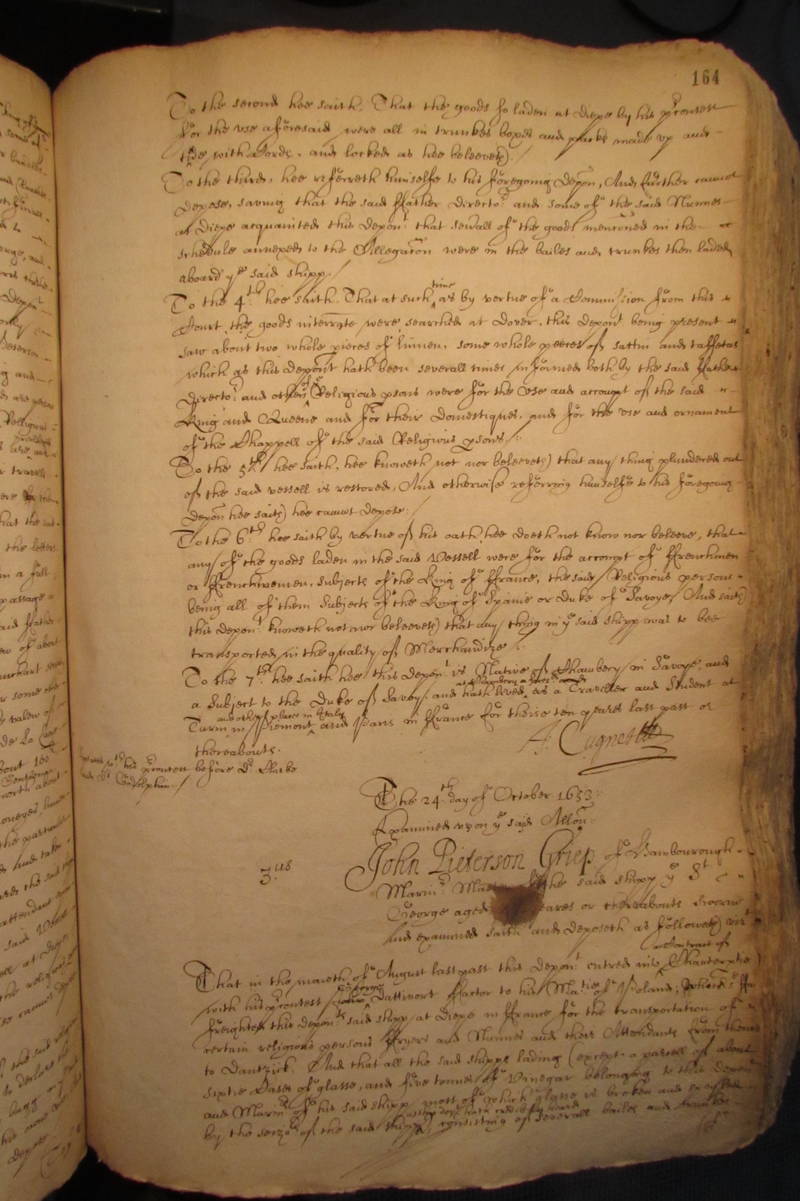 164
To the second hee saith, That the goods so laden at Diepe by his precontest
for the use aforesaid were all in trunkes boxes and packs made up and
tide with Cords, and locked as hee beleeveth.
To the third, hee referreth himselfe to his foregoing depon, And further cannot
depose, saving that the said ffather Director and some of the said Nunnes
at Diepe acquainted this deponent that severall of the goods mencioned in the
schedule annexed to the Allegacon were in the bailes and trunkes then laden
aboard ye said shipp.
To the 4th hee saith, That at such time as by vertue of a Commission from this
Court the goods interrate were searched at Dover, this deponent being present
saw about two whole pieces of linnen, some whole peeces of sattin and taffatas
which as this deponent hath been severall times informed both by the said ffather
Director and other of Religious psons were for the Use and accompt of the said
King and Queene and for their domestiques, and for the use and ornament
of the Chappell of the said Religious psons.
To the 5th hee saith, hee knoweth not nor beleeveth that any thing plundered out
of the said vessell is restored, And otherwise referring himselfe to his foregoing
depon hee saith hee cannot depose.
To the 6th hee saith by vertue of his oath, hee doeth not know nor beleeve, that
any of the goods laden in the said Vessell were for the accompt of ffrenchmen
or ffrenchwemen, subjects of the King of ffrance, the said Religious persons
being all of them subjects of the King of Spaine or Duke of Savoye, And saith
this deponent knoweth not nor beleeveth that any thing in ye said shipp was to bee
transported in the quality of Merchandize.
To the 7th hee saith hee this deponent is Native of Chambery in Savoye and
a subject to the Duke of Savoy and hath lived as a Traveller and Student at
Turin in Piemont and other places in Italy and Paris in ffrance for theise ten yeares last past or
thereabouts.
before Dr Clarke
The 24th day of October 1653.
Examined upon ye said Allon.
3us
John Pieterson Griep of Hambourough
Marinr Master the said shipp ye St
George aged yeares or thereabouts sworne
and examined saith and deposeth as followeth vizt
That in the moneth of August last past this deponent entred into a Contract of Charterpartie
with his precontest George Dattmort ffactor to his Matie of Poland,
freighted this deponents said shipp at Diepe in ffrance for the transportation of
certain religious persons ffryers and Nunnes and their Attendants from thence
to Dantzick, And that all the said shipps lading (except a parcell of about
sixtie Cases of glasse, and five tonnes of Vinegar belonging to this deponent
and Mariners of his said shipp most of which glasse is broken and
by the seizure of the said shipp consisting of severall bailes and trunkes